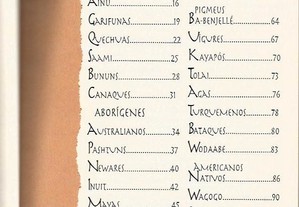 AINU................16
GARIFUNAS................19
QUECHUAS................22
SAAMI................25
BUNUNS................28
CANAQUES................31
ABORÍGENES
AUSTRALIANOS................34
PASHTUNS................37
NEWARES................40
INUIT................42
MAYAS................45
PIGMEUS
BA-BENJELLÉ................64
UIGURES................67
KAYAPÓS................70
TOLAI................73
AGAS................76
TURQUEMENOS................78
BATAQUES................80
WODAABE................83
AMERICANOS
NATIVOS................86
WAGOGO................90